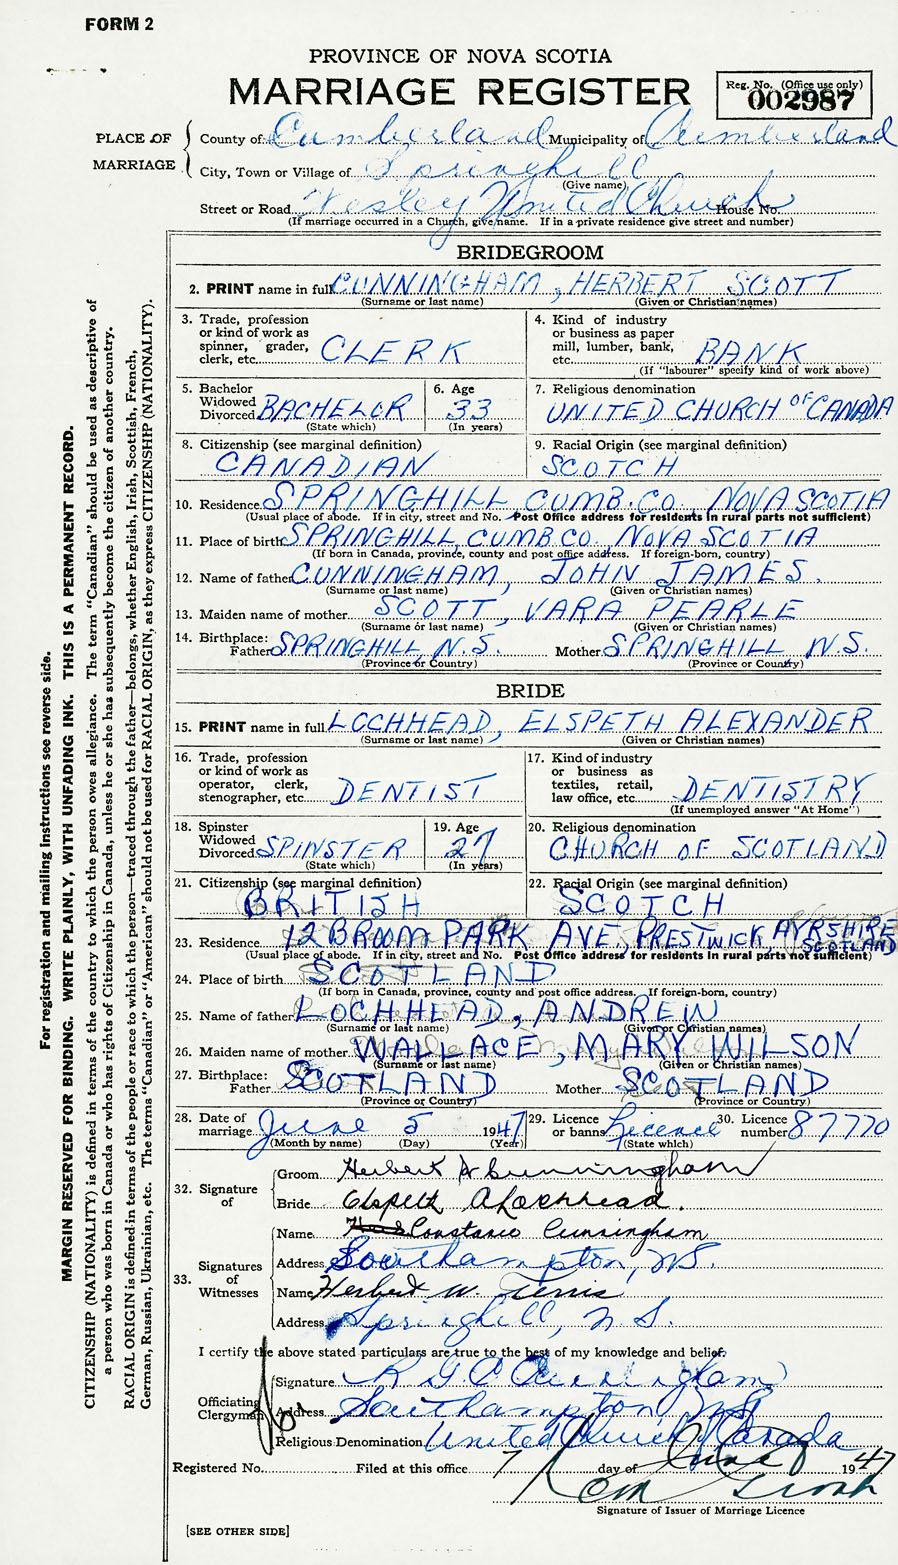 FORM 2
PROVINCE OF NOVA SCOTIA
MARRIAGE REGISTER
Reg. No. (Office use only)
002987
PLACE OF MARRIAGE
County of Cumberland Municipality of Cumberland
City, Town or Village of Springhill
(Give name)
Street or Road Wesley United Church House No.
(If marriage occurred in a Church, give name. If in a private residence give street and number)
BRIDEGROOM
2. PRINT name in full CUNNINGHAM, HERBERT SCOTT
(Surname or last name) (Given or Christian names)
3. Trade, profession or kind of work as spinner, grader, clerk, etc. CLERK
4. Kind of industry or business as paper mill, lumber, bank, etc. BANK
(If "labourer" specify kind of work above)
5. Bachelor Widowed Divorced BACHELOR
(State which)
6. Age 33
(In years)
7. Religious denomination
UNITED CHURCH OF CANADA
8. Citizenship (see marginal definition)
CANADIAN
9. Racial Origin (see marginal definition)
SCOTCH
10. Residence SPRINGHILL CUMB. CO. NOVA SCOTIA
(Usual place of abode. If in city, street and No. Post Office address for residents in rural parts not sufficient)
11. Place of birth SPRINGHILL, CUMB. CO. NOVA SCOTIA
(If born in Canada, province, county and post office address. If foreign-born, country)
12. Name of father CUNNINGHAM, JOHN JAMES.
(Surname or last name) (Given or Christian names)
13. Maiden name of mother SCOTT, VARA PEARLE
(Surname or last name) (Given or Christian names)
14. Birthplace: Father SPRINGHILL, N.S. Mother SPRINGHILL N.S.
(Province or Country) (Province or Country)
BRIDE
15. PRINT name in full LOCHHEAD, ELSPETH ALEXANDER
(Surname or last name) (Given or Christian names)
16. Trade, profession or kind of work as operator, clerk, stenographer, etc. DENTIST
17. Kind of industry or business as textiles, retail, law office, etc. DENTISTRY
(If unemployed answer "At Home")
18. Spinster Widowed Divorced SPINSTER
(State which)
19. Age 27
(In years)
20. Religious denomination
CHURCH OF SCOTLAND
21. Citizenship (see marginal definition)
BRITISH
22. Racial Origin (see marginal definition)
SCOTCH
23. Residence 12 BROOM PARK AVE, PRESTWICK AYRSHIRE SCOTLAND
(Usual place of abode. If in city, street and No. Post Office address for residents in rural parts not sufficient)
24. Place of birth SCOTLAND
(If born in Canada, province, county and post office address. If foreign-born, country)
25. Name of father LOCHHEAD, ANDREW
(Surname or last name) (Given or Christian names)
26. Maiden name of mother WALLACE, MARY WILSON
(Surname or last name) (Given or Christian names)
27. Birthplace: Father SCOTLAND Mother SCOTLAND
(Province or Country) (Province or Country)
28. Date of marriage June 5 1947
(Month by name) (Day) (Year)
29. Licence or banns Licence
(State which)
30. Licence number 87770
32. Signature of
Groom Herbert S Cunningham
Bride Elspeth A Lochhead.
33. Signatures of Witnesses
Name Constance Cunningham
Address Southampton, N.S.
Name Herbert W.
Address Springhill, N.S.
I certify the above stated particulars are true to the best of my knowledge and belief.
Officiating Clergyman
Signature R G C Cunningham
Address Southampton N.S.
Religious Denomination United Church Canada
Registered No. Filed at this office 7 day of June 1947
Signature of Issuer of Marriage Licence
[SEE OTHER SIDE]
For registration and mailing instructions see reverse side.
MARGIN RESERVED FOR BINDING. WRITE PLAINLY, WITH UNFADING INK. THIS IS A PERMANENT RECORD.
CITIZENSHIP (NATIONALITY) is defined in terms of the country to which the person owes allegiance. The term "Canadian" should be used as descriptive of
a person who was born in Canada or who has rights of Citizenship in Canada, unless he or she has subsequently become the citizen of another country.
RACIAL ORIGIN is defined in terms of the people or race to which the person—traced through the father—belongs, whether English, Irish, Scottish, French,
German, Russian, Ukrainian, etc. The terms "Canadian" or "American" should not be used for RACIAL ORIGIN, as they express CITIZENSHIP (NATIONALITY).